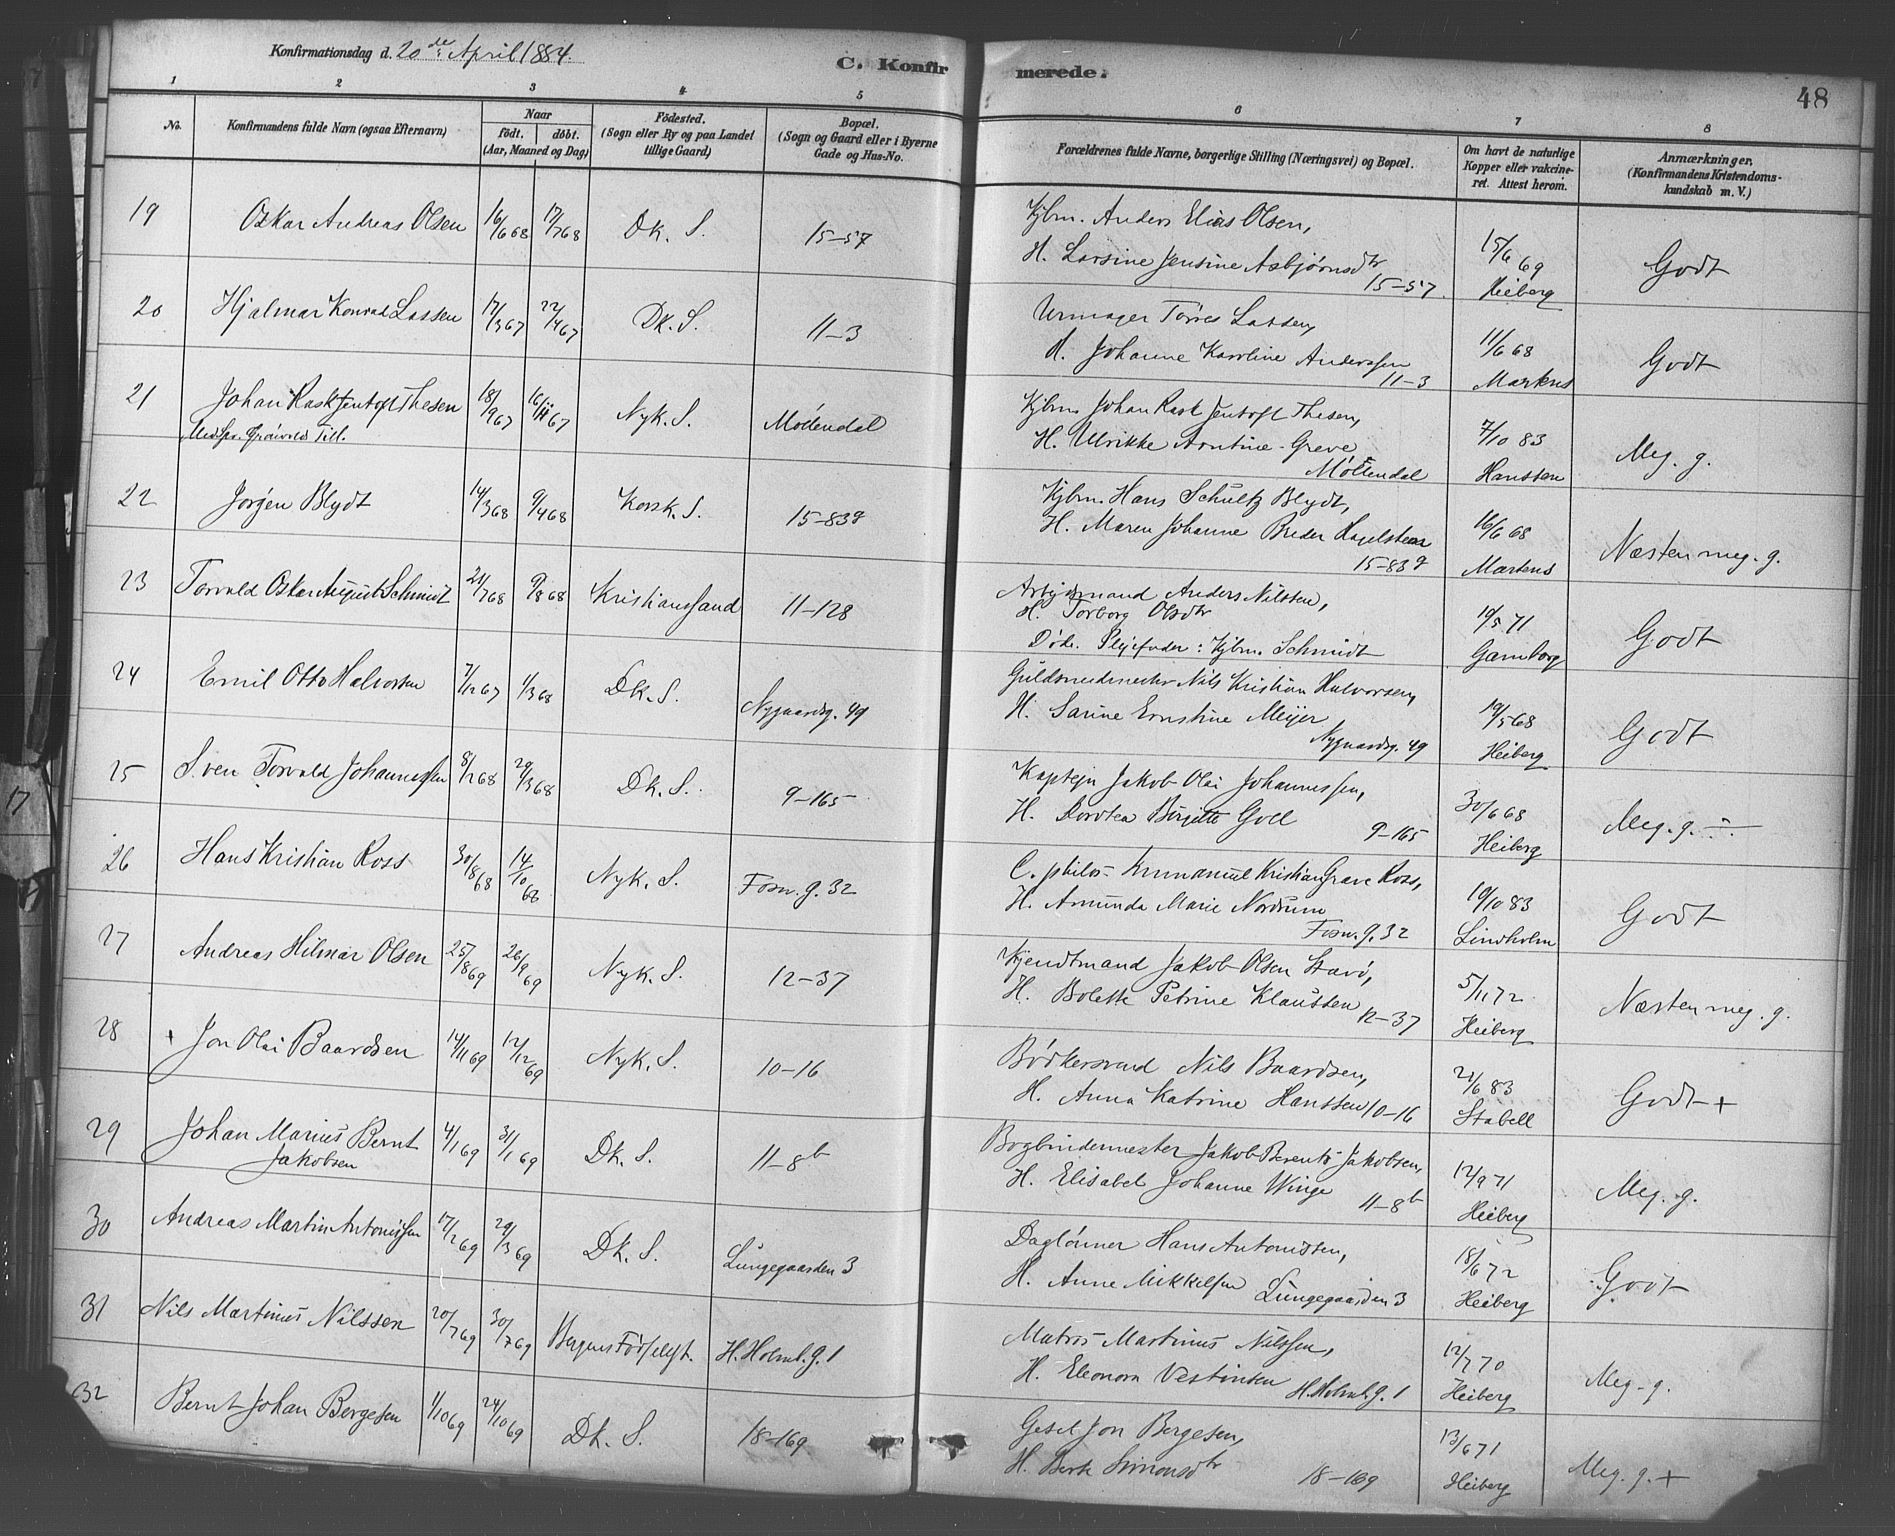 Konfirmationsdag d. 20de April 1884.
C. Konfirmerede.
48
1 2 3 4 5 6 7 8
No.
Konfirmandens fulde Navn (ogsaa Efternavn)
Naar
født. døbt.
(Aar, Maaned og Dag)
Fødested.
(Sogn eller By og paa Landet
tillige Gaard)
Bopæl.
(Sogn og Gaard eller i Byerne
Gade og Hus-No.
Forældrenes fulde Navne, borgerlige Stilling (Næringsvei) og Bopæl.
Om havt de naturlige
Kopper eller vakcine-
ret. Attest herom.
Anmærkninger.
(Konfirmandens Kristendoms-
kundskab m. V.)
19 Oskar Andreas Olsen 16/6 68 17/7 68 Dk. S. 15-57
Kjbm. Anders Elias Olsen,
H. Larsine Jensine Asbjørnsdtr
15-57.
15/6 69
Heiberg
Godt
20 Hjalmar Konrad Lassen 17/3 67 22/4 67 Dk. S. 11-3
Urmager Tørres Lassen,
H. Johanne Karoline Anderssen
11-3
11/6 68
Martens
Godt
21 Johan Rask Jentoft Thesen 18/9 67 Nyk. S. Møllendal
Till.
Kjbm. Johan Rask Jentoft Thesen,
H. Ulrikke Arntine Greve
Møllendal
7/10 83
Hanssen
Meg. g.
22 Jørgen Blydt 14/3 68 9/4 68 Korsk. S. 15-83
Kjbm. Hans Schultz Blydt,
H. Maren Johanne Breder
15-83
16/6 68
Martens
Næsten meg. g.
23 Torvald Oskar August Schmidt 21/7 68 9/8 68 Kristianssand 11-128
Arbejdsmand Anders Nilssen,
H. Torborg Olsdtr
Døde. Plejefader: Kjbm. Schmidt
19/5 71
Gamborg
Godt
24 Emil Otto Halvorsen 7/12 67 1/3 68 Dk. S. Nygaardsg. 49
Guldsmedmester Nils Kristian Halvorsen,
H. Sarine Ernstine Meijer
Nygaardsg. 49
19/5 68
Heiberg
Godt
25 Sven Torvald Johannessen 8/1 68 29/3 68 Dk. S. 9-165
Kaptejn Jakob Olai Johannessen,
H. Dorotea Birgitte Goll
9-165
30/6 68
Heiberg
Meg. g. ÷
26 Hans Kristian Ross 30/8 68 14/10 68 Nyk. S. Fosw. g. 32
C. philos Immanuel Kristian Grave Ross,
H. Amunda Marie Nordrum
Fosw. g. 32
19/10 83
Lindholm
Godt
27 Andreas Hilmar Olsen 25/8 69 26/9 69 Nyk. S. 12-37
Kjendtmand Jakob Olsen Stavø,
H. Bolette Petrine Klaussen 12-37
5/11 72
Heiberg
Næsten meg. g.
28 + Jon Olai Baardsen 14/11 69 12/12 69 Nyk. S. 10-16
Bødkersvend Nils Baardsen,
H. Anna Katrine Hanssen 10-16
21/6 83
Stabell
Godt +
29 Johan Marius Bernt
Jakobsen 4/1 69 31/1 69 Dk. S. 11-8b
Bogbindermester Jakob Berent Jakobsen,
H. Elisabet Johanne Winge
11-8b
12/9 71
Heiberg
Meg. g.
30 Andreas Martin Antonissen 17/2 69 29/3 69 Dk. S. Lungegaarden 3
Daglønner Hans Antonissen,
H. Anne Mikkelsen Lungegaarden 3
18/6 72
Heiberg
Godt
31 Nils Martinus Nilssen 20/7 69 30/7 69 Bergens Fødselsst. H. Holmb. g. 1
Matros Martinus Nilssen,
H. Eleonora Vestinsen H. Holmb. g. 1
12/7 70
Heiberg
Meg. g.
32 Bernt Johan Bergesen 1/10 69 24/10 69 Dk. S. 18-169
Gesel Jon Bergesen,
H. Berte Simonsdtr 18-169
13/6 71
Heiberg
Meg. g. +
17